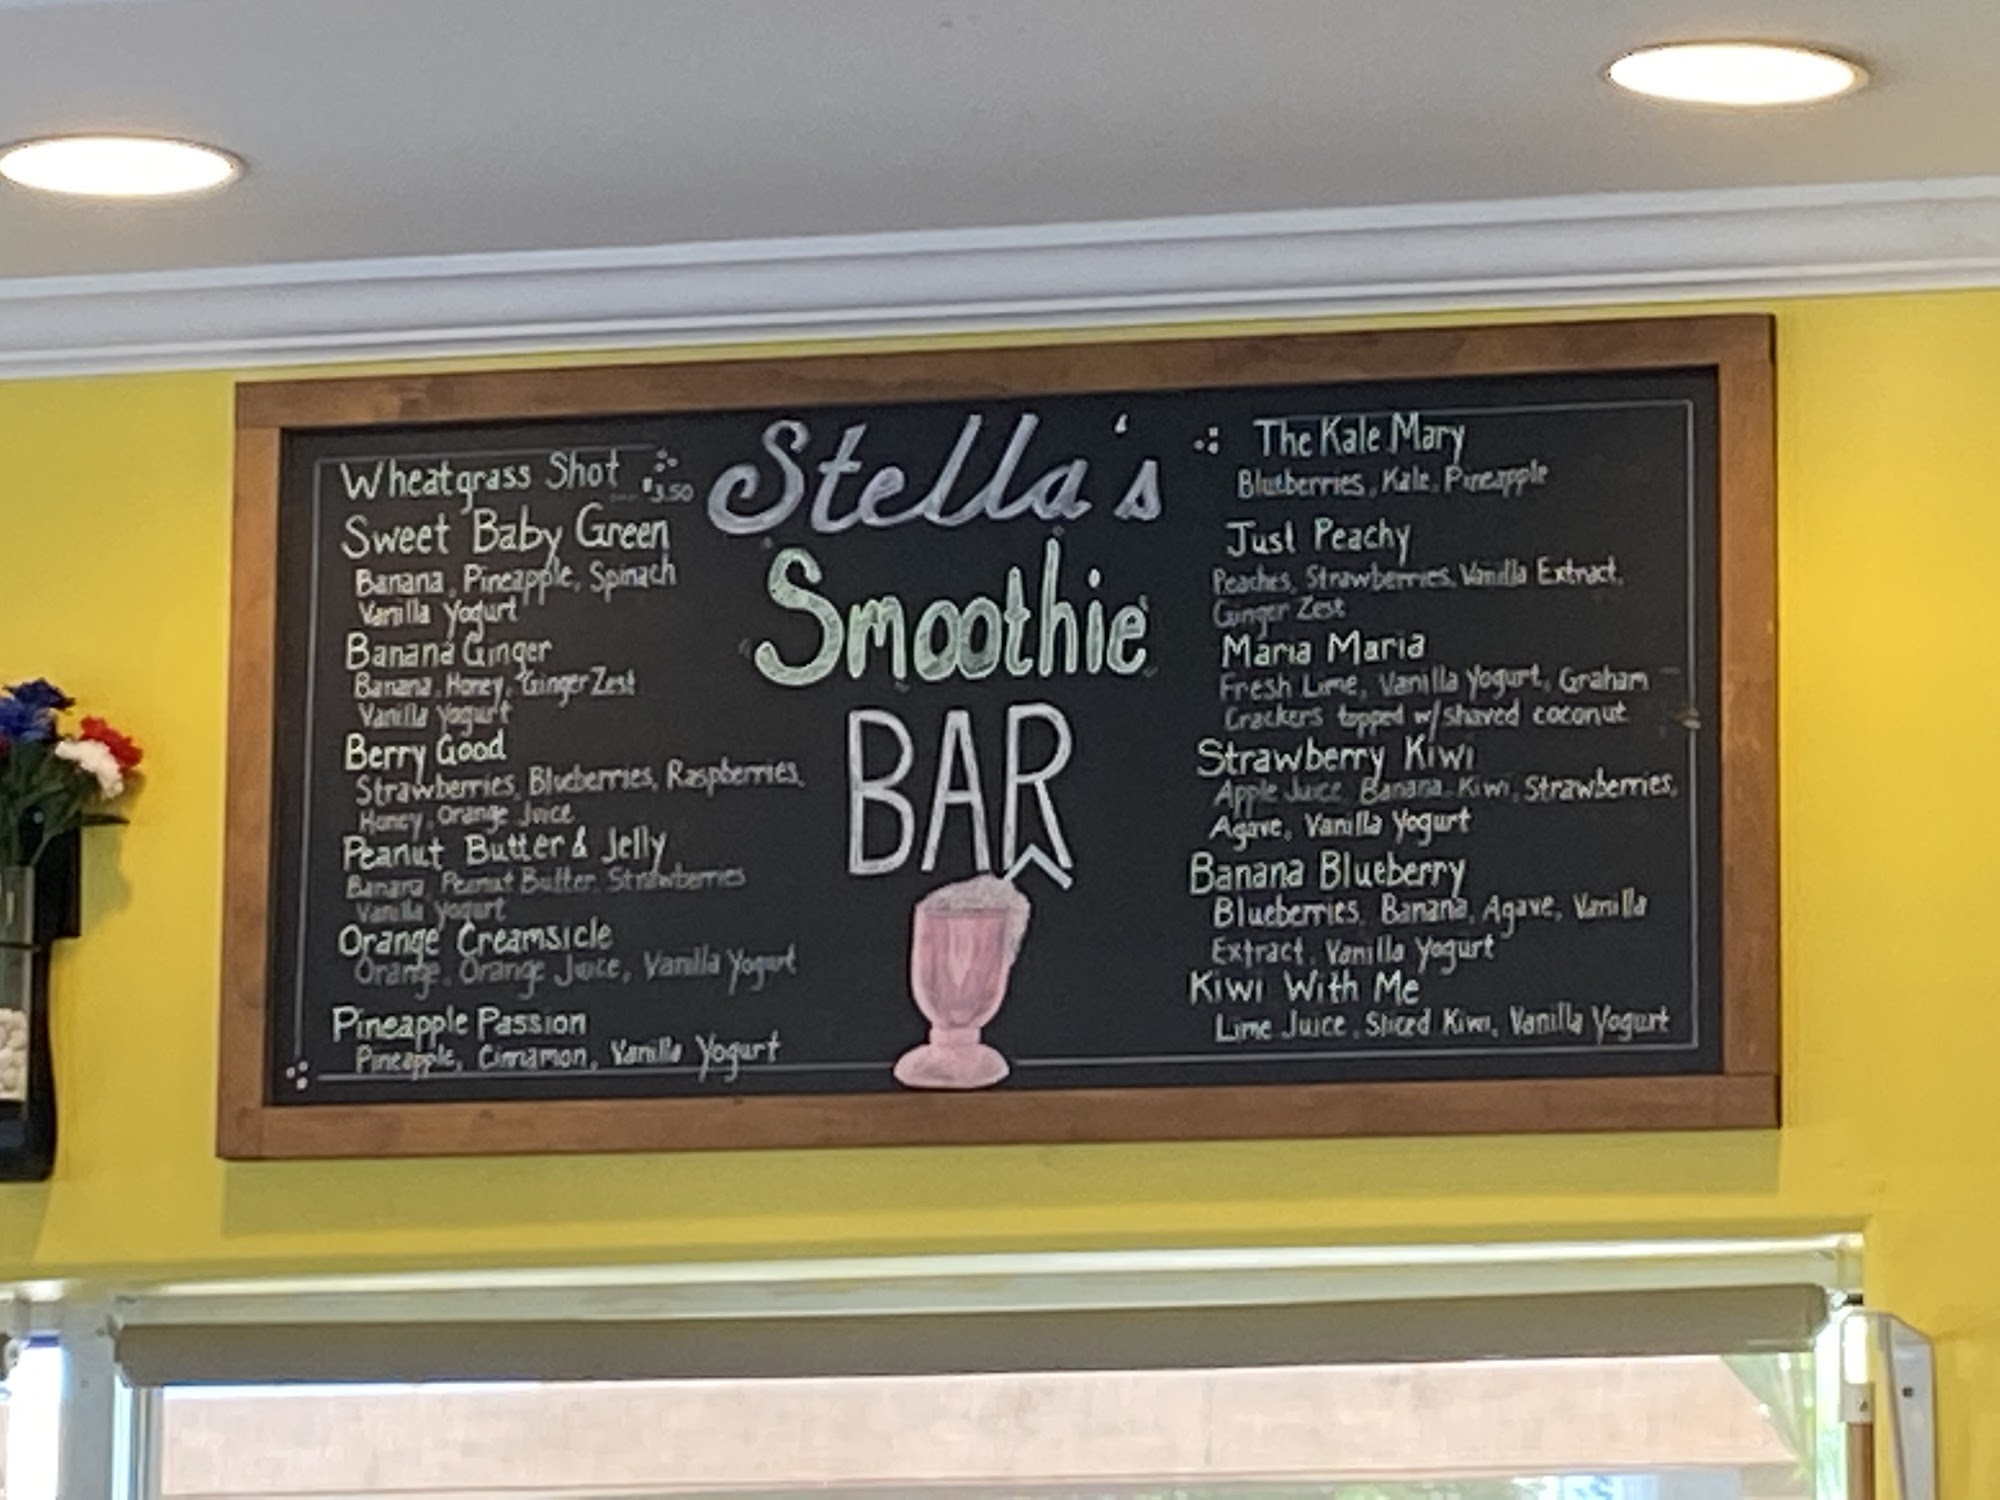 Stella's
Smoothie
BAR
Wheatgrass Shot $3.50
Sweet Baby Green
Banana, Pineapple, Spinach
Vanilla Yogurt
Banana Ginger
Banana, Honey, Ginger Zest
Vanilla Yogurt
Berry Good
Strawberries, Blueberries, Raspberries,
Honey, Orange Juice
Peanut Butter & Jelly
Banana, Peanut Butter, Strawberries
Vanilla Yogurt
Orange Creamsicle
Orange, Orange Juice, Vanilla Yogurt
Pineapple Passion
Pineapple, Cinnamon, Vanilla Yogurt
The Kale Mary
Blueberries, Kale, Pineapple
Just Peachy
Peaches, Strawberries, Vanilla Extract,
Ginger Zest
Maria Maria
Fresh Lime, Vanilla Yogurt, Graham
Crackers topped w/shaved coconut
Strawberry Kiwi
Apple Juice, Banana, Kiwi, Strawberries,
Agave, Vanilla Yogurt
Banana Blueberry
Blueberries, Banana, Agave, Vanilla
Extract, Vanilla Yogurt
Kiwi With Me
Lime Juice, Sliced Kiwi, Vanilla Yogurt